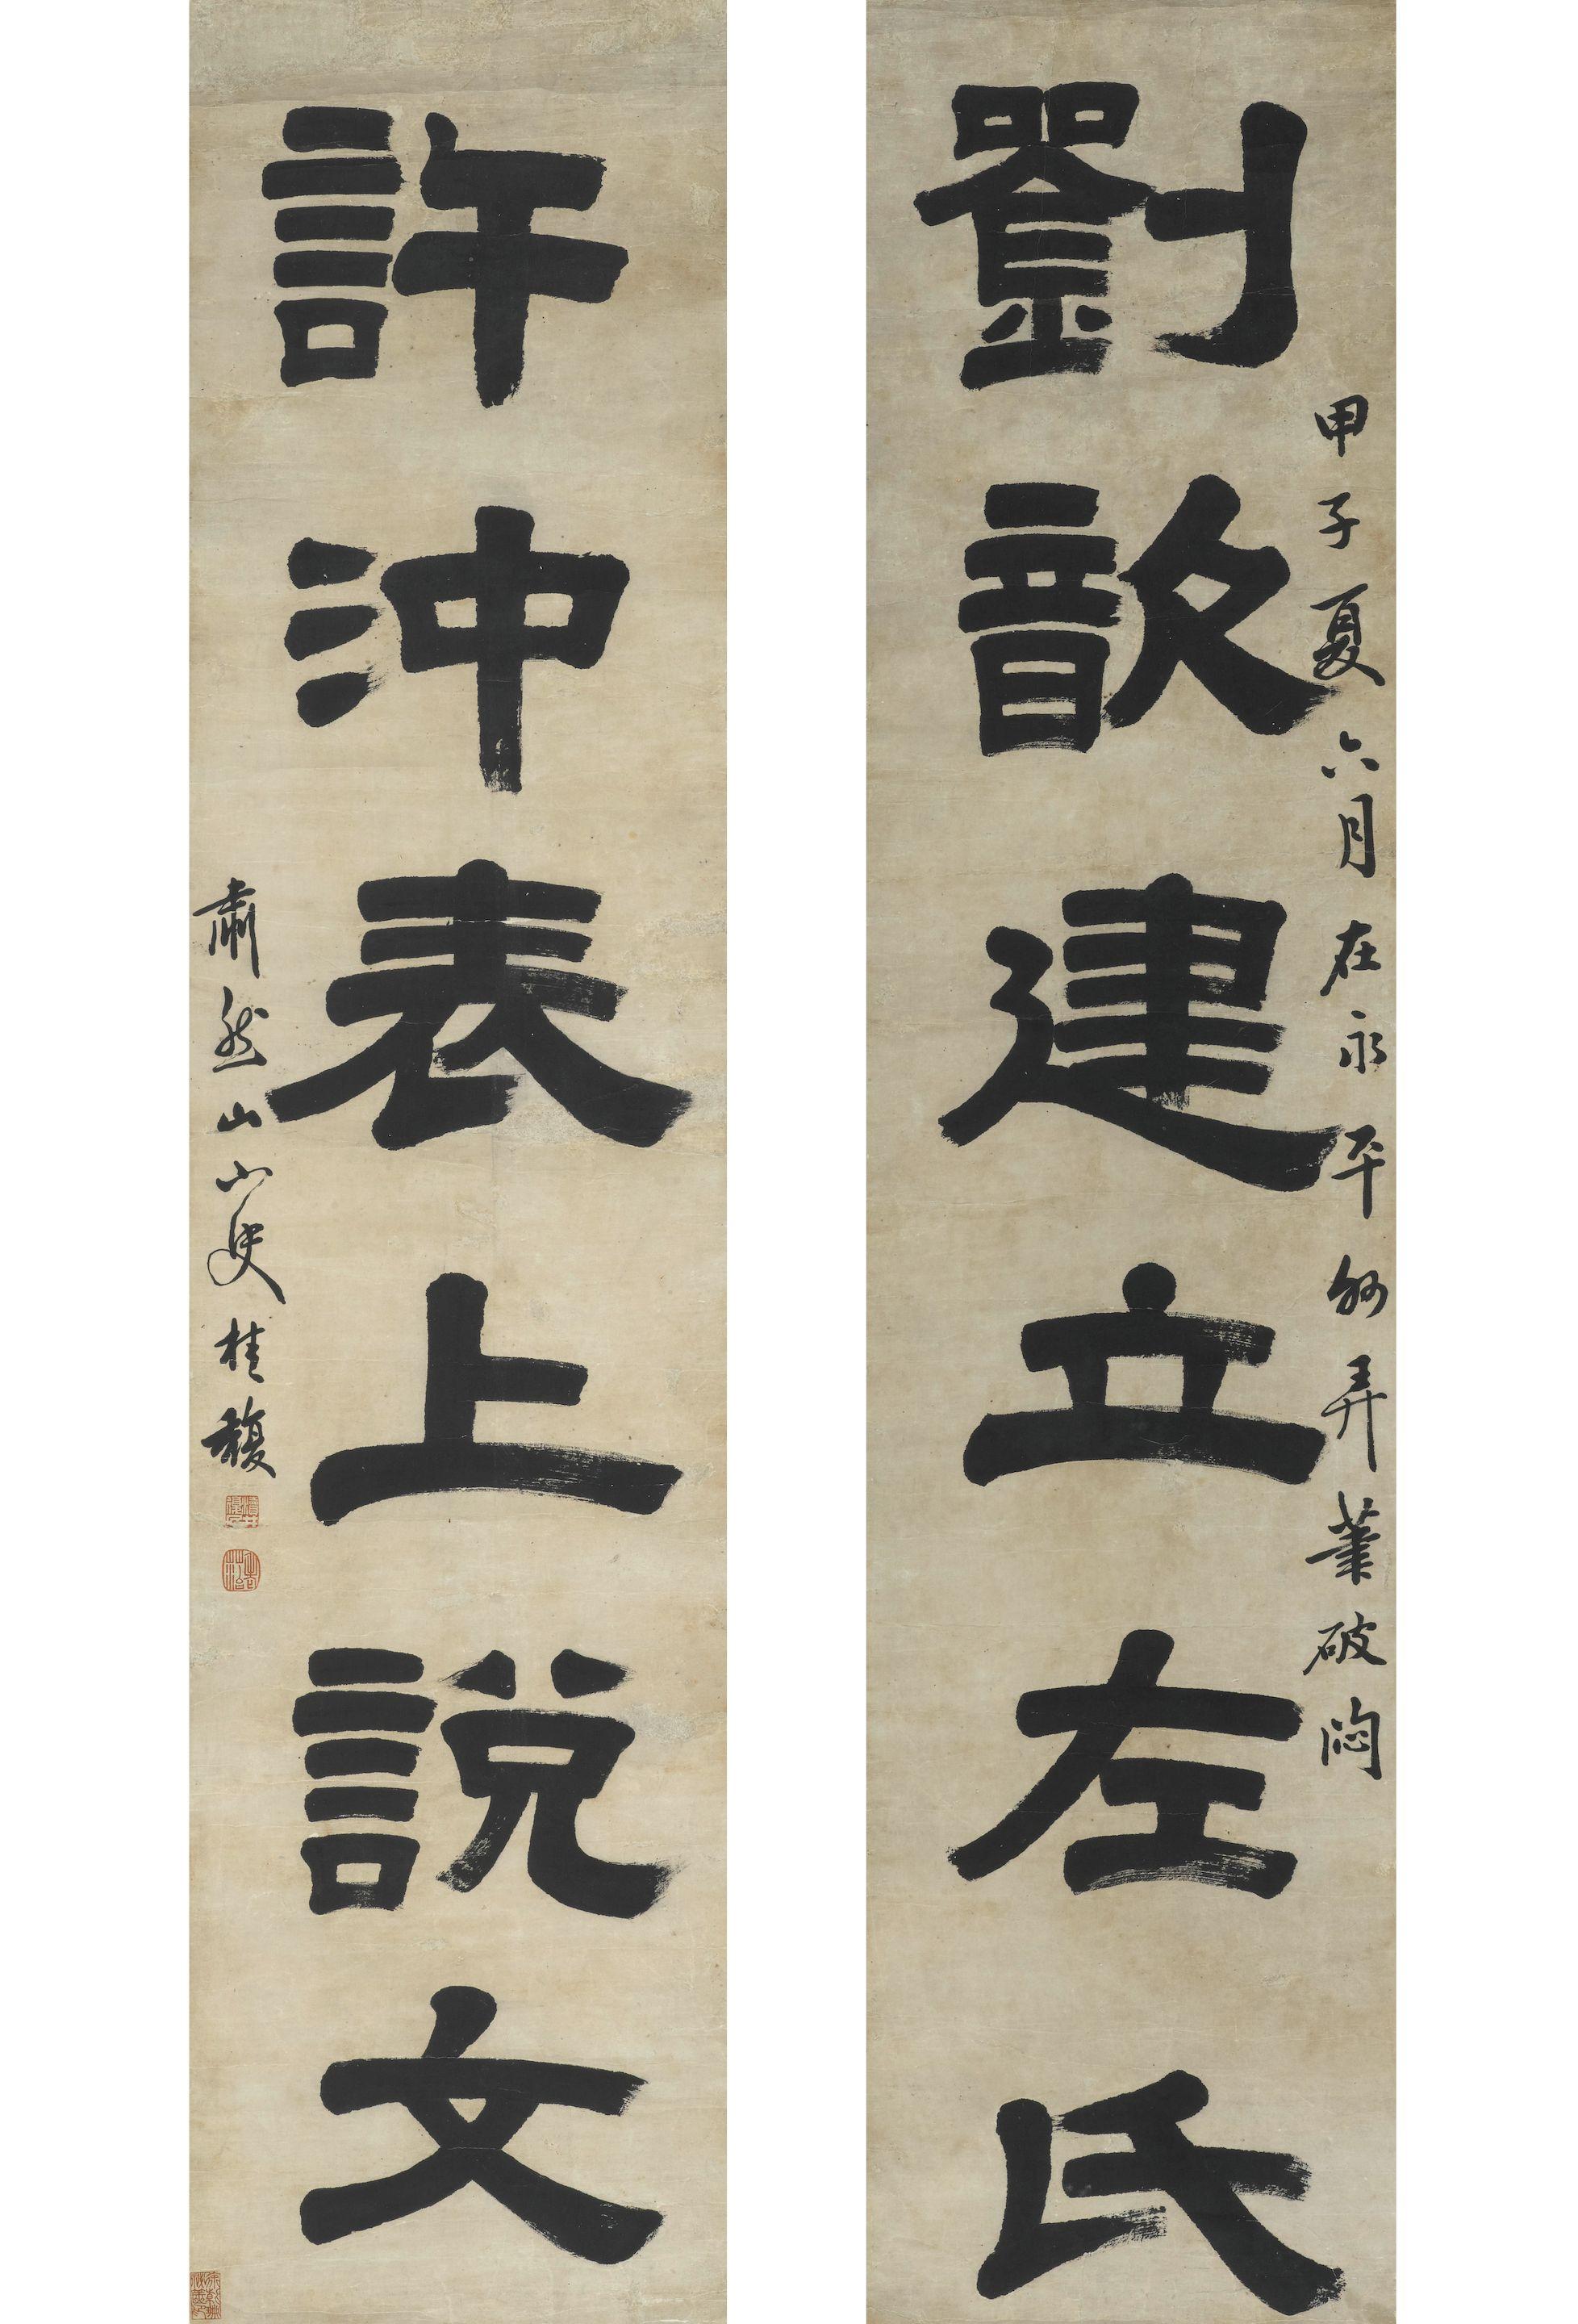 劉歆建立左氏
甲子夏六月在永平郡弄筆破悶
許沖表上説文
肅然山小史桂馥